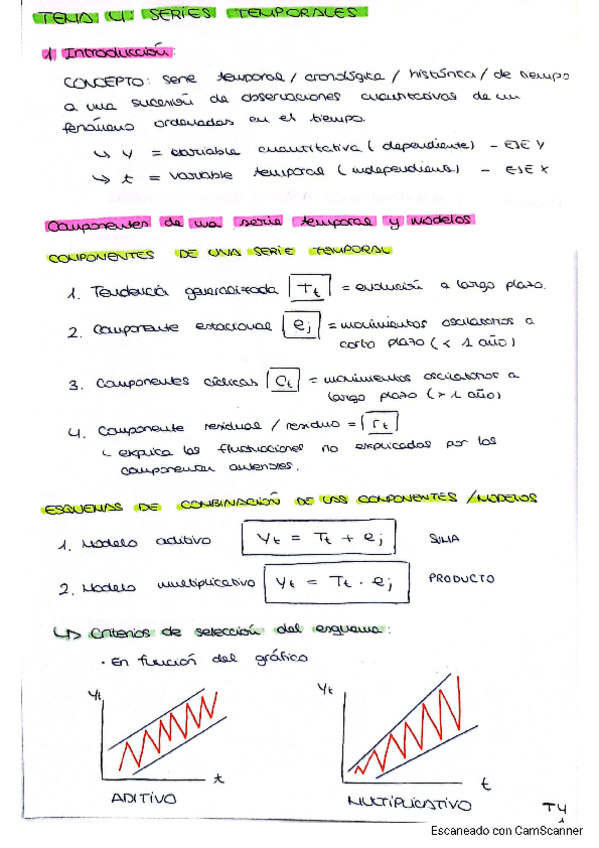 TEMA 4: SERIES TEMPORALES
1 Introducción:
CONCEPTO: serie temporal / cronológica / histórica / de tiempo
a una sucesión de observaciones cuantitativas de un
fenómeno ordenadas en el tiempo.
↳ Y = variable cuantitativa (dependiente) - EJE Y
↳ t = variable temporal (independiente) - EJE X
Componentes de una serie temporal y modelos
COMPONENTES DE UNA SERIE TEMPORAL
1. Tendencia generalizada Tt = evolución a largo plazo.
2. Componente estacional ej = movimientos oscilatorios a
corto plazo (< 1 año)
3. Componentes cíclicas Ct = movimientos oscilatorios a
largo plazo (> 1 año)
4. Componente residual / residuo = rt
↳ explica las fluctuaciones no explicadas por las
componentes anteriores.
ESQUEMAS DE COMBINACIÓN DE LAS COMPONENTES / MODELOS
1. Modelo aditivo Yt = Tt + ej SUMA
2. Modelo multiplicativo Yt = Tt · ej PRODUCTO
↳ Criterios de selección del esquema:
· En función del gráfico
Yt Yt
t t
ADITIVO MULTIPLICATIVO T4
1
Escaneado con CamScanner